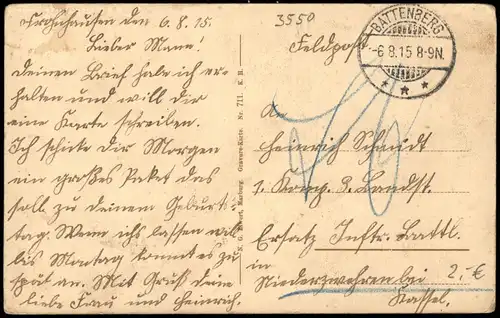 Frohnhausen den 6.8.15.
Lieber Mann!
Deinen Brief habe ich er-
halten und will dir
eine Karte schreiben.
Ich schicke dir Morgen
ein großes Paket das
soll zu deinem Geburt
tag. Wenn ichs lassen will
bis Montag kommt es zu
spät an. Mit Gruß deine
liebe Frau und Heinrich.
N. G. Elwert, Marburg. Gravure-Karte. Nr. 711. K. B.
3550
Feldpost
BATTENBERG
-6.8.15 8-9N.
An
Heinrich Schmidt
1. Komp. 3. Landst.
Ersatz Inftr. Battl.
in
Niederzwehren bei
Kassel.
2.-€